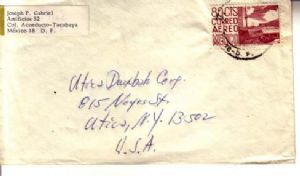 Joseph P. Gabriel
Artificios 52
Col. Acueducto-Tacubaya
México 18 D. F.
80 CTS
CORREO
AEREO
MEXICO
Utica Dunbak Corp.
815 Noyes St.
Utica, N.Y. 13502
U.S.A.